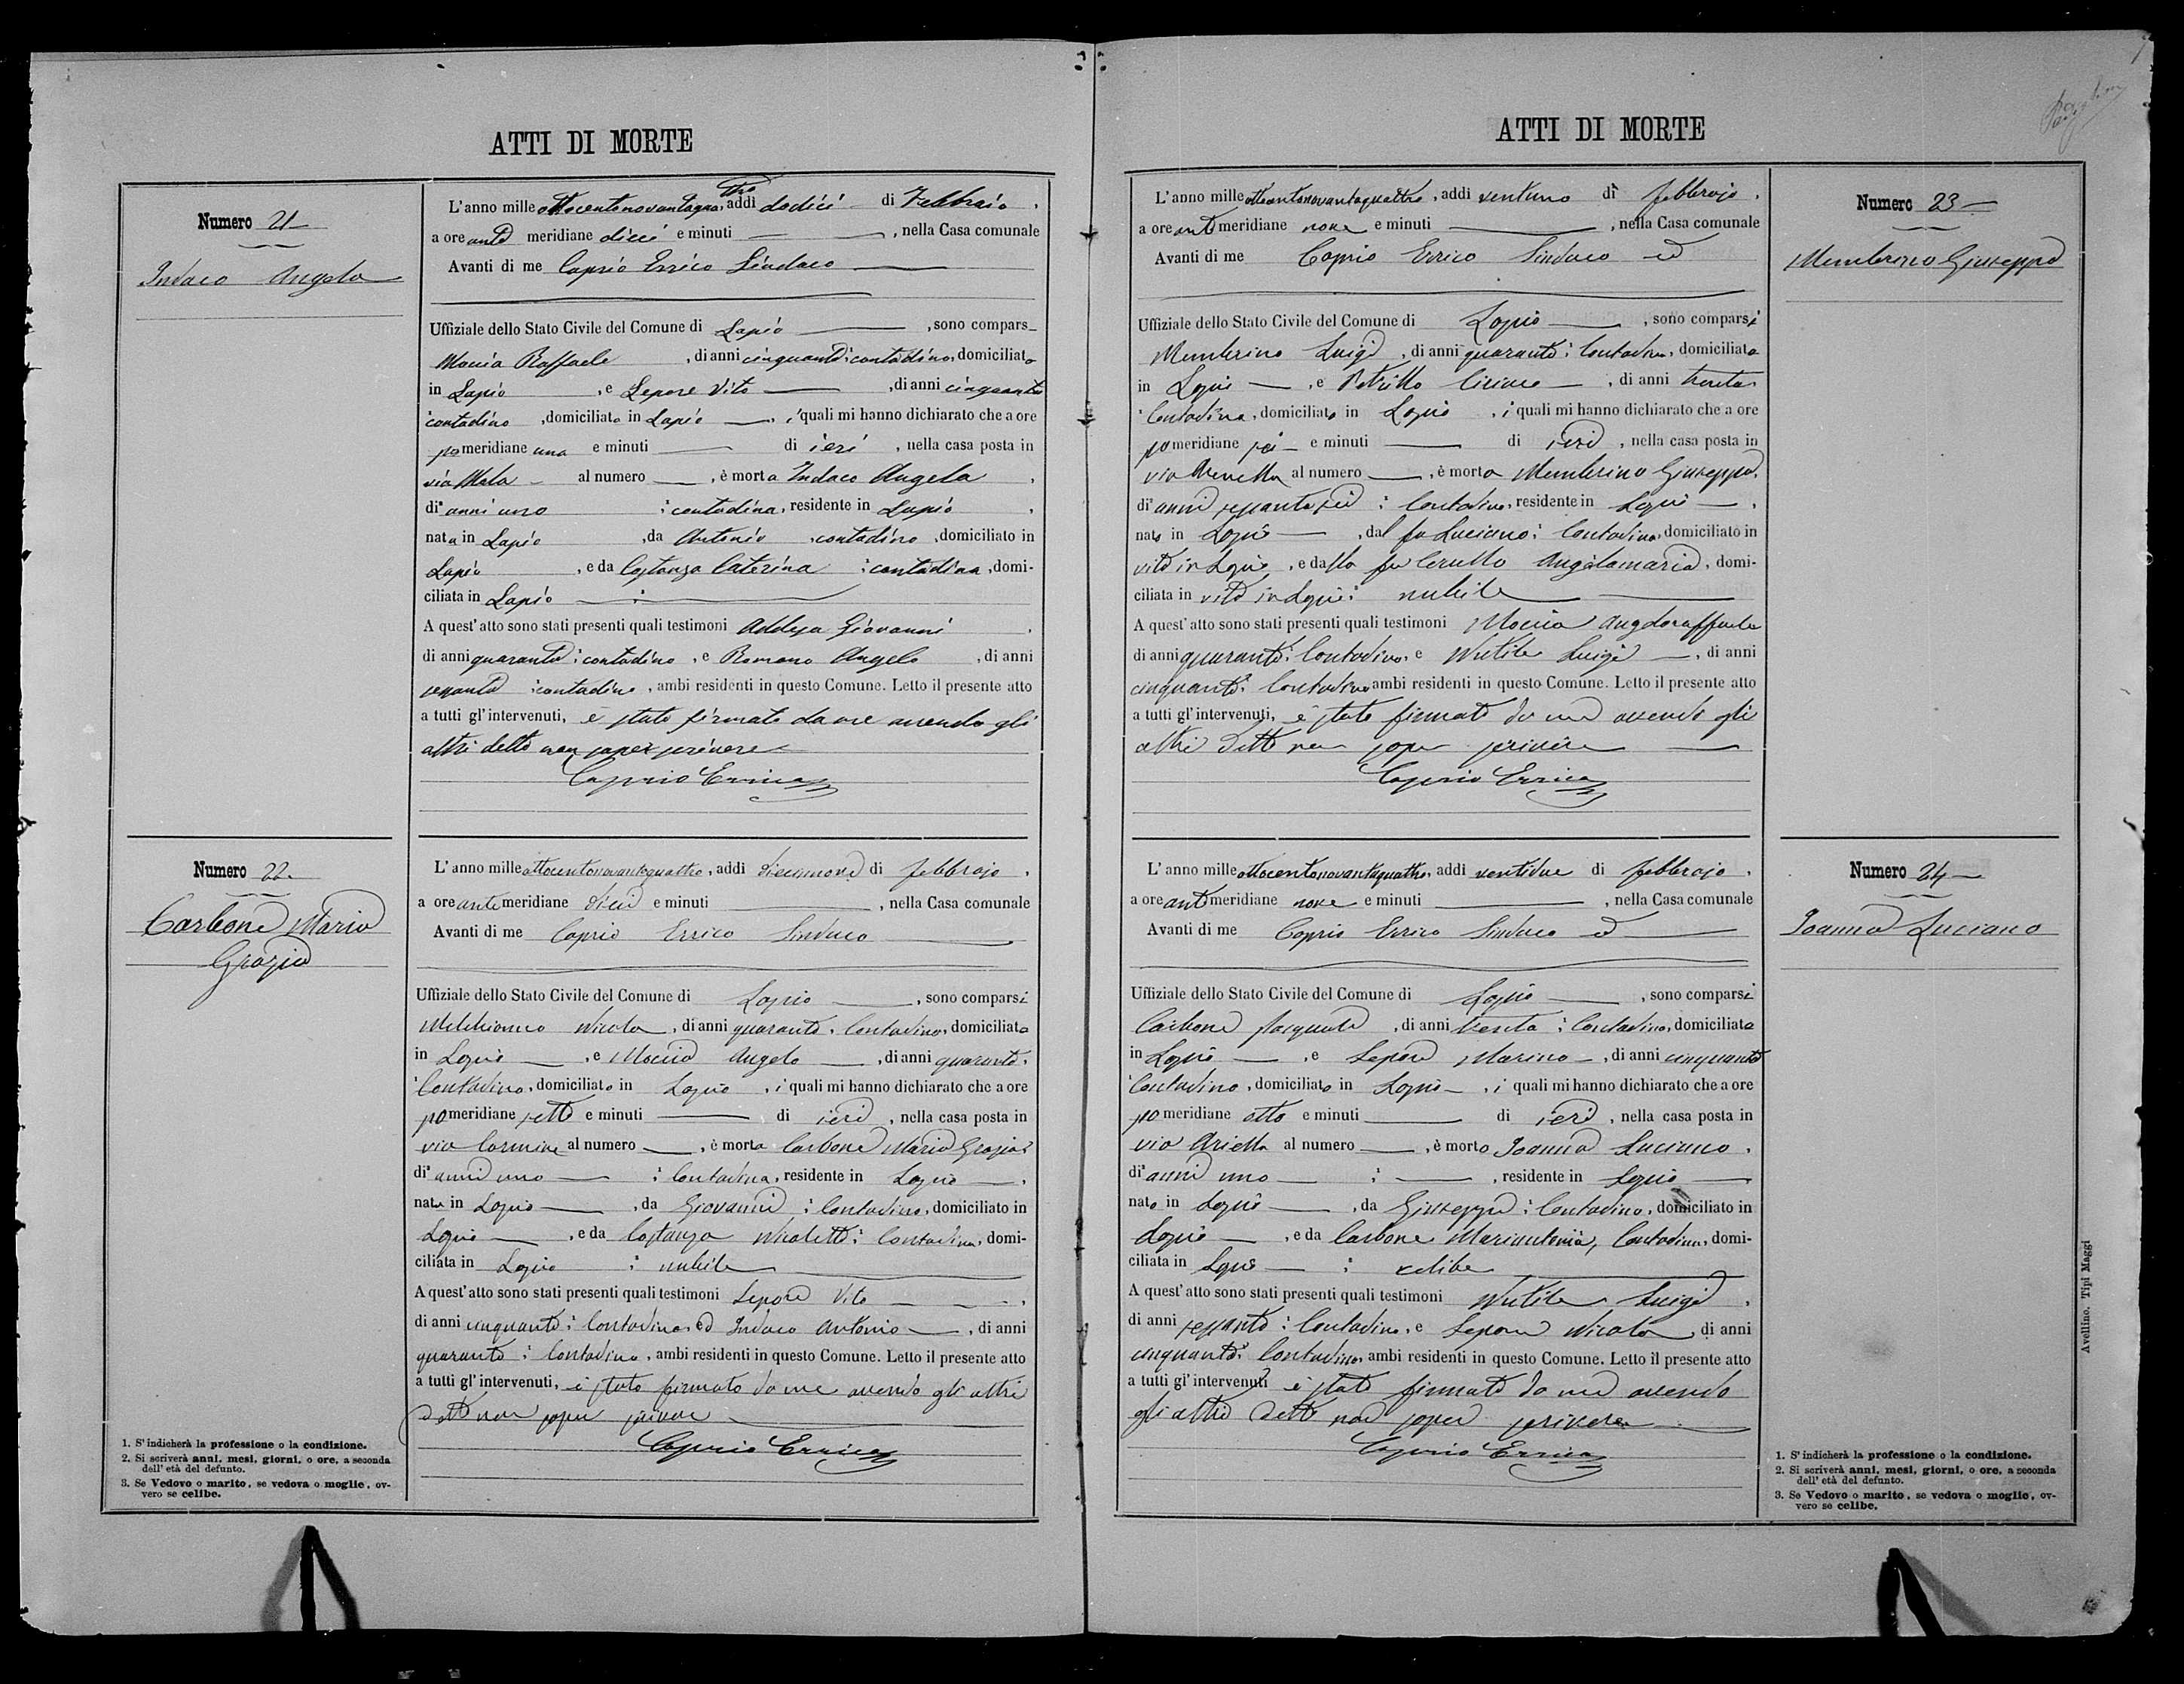 ATTI DI MORTE
Numero 21
Indaco Angela
L'anno mille ottocentonovantaquattro, addì dodici di Febbraio,
a ore anti meridiane dieci e minuti — , nella Casa comunale
Avanti di me Caprio Errico Sindaco
Uffiziale dello Stato Civile del Comune di Lapio , sono compars
Moccia Raffaele , di anni cinquanta; contadino, domiciliato
in Lapio , e Lepore Vito , di anni cinquanta
contadino , domiciliato in Lapio , i quali mi hanno dichiarato che a ore
po meridiane una e minuti — di ieri , nella casa posta in
via Mala al numero — , è morta Indaco Angela ,
di anni uno ; contadina, residente in Lapio ,
nata in Lapio , da Antonio , contadino , domiciliato in
Lapio , e da Costanza Caterina ; contadina , domi-
ciliata in Lapio ;
A quest'atto sono stati presenti quali testimoni Addesa Giovanni ,
di anni quaranta ; contadino , e Romano Angelo , di anni
sessanta ; contadino , ambi residenti in questo Comune. Letto il presente atto
a tutti gl'intervenuti, è stato firmato da me avendo gli
altri detto non saper scrivere
Caprio Errico
Numero 22
Carbone Maria
Grazia
L'anno mille ottocentonovantaquattro, addì diecinove di febbrajo ,
a ore anti meridiane dieci e minuti — , nella Casa comunale
Avanti di me Caprio Errico Sindaco
Uffiziale dello Stato Civile del Comune di Lapio , sono comparsi
Melchionno Nicola , di anni quaranta ; Contadino, domiciliato
in Lapio , e Moccia Angelo , di anni quaranta ;
Contadino, domiciliato in Lapio , i quali mi hanno dichiarato che a ore
po meridiane sette e minuti — di ieri , nella casa posta in
via Carmine al numero — , è morta Carbone Maria Grazia
di anni uno ; Contadina, residente in Lapio ,
nata in Lapio , da Giovanni ; Contadino, domiciliato in
Lapio , e da Costanza Nicoletta ; Contadina, domi-
ciliata in Lapio ; nubile
A quest'atto sono stati presenti quali testimoni Lepore Vito ,
di anni cinquanta ; Contadino, ed Indaco Antonio , di anni
quaranta ; Contadino , ambi residenti in questo Comune. Letto il presente atto
a tutti gl'intervenuti, è stato firmato da me avendo gli altri
detto non saper scrivere
Caprio Errico
1. S'indicherà la professione o la condizione.
2. Si scriverà anni, mesi, giorni, o ore, a seconda
dell'età del defunto.
3. Se Vedovo o marito, se vedova o moglie, ov-
vero se celibe.
ATTI DI MORTE
Numero 23
Memberino Giuseppa
L'anno mille ottocentonovantaquattro, addì ventuno di febbrajo ,
a ore anti meridiane nove e minuti — , nella Casa comunale
Avanti di me Caprio Errico Sindaco ed
Uffiziale dello Stato Civile del Comune di Lapio , sono comparsi
Memberino Luigi , di anni quaranta ; Contadino, domiciliato
in Lapio , e Petrillo Ciriaco , di anni trenta
; Contadino, domiciliato in Lapio , i quali mi hanno dichiarato che a ore
po meridiane sei e minuti — di ieri , nella casa posta in
via al numero — , è morta Memberino Giuseppa,
di anni sessantasei ; Contadina, residente in Lapio ,
nata in Lapio , dal fu Luciano ; Contadino, domiciliato in
vita in Lapio , e dalla fu Cerullo Angelamaria , domi-
ciliata in vita in Lapio ; nubile
A quest'atto sono stati presenti quali testimoni Moccia Angeloraffaele
di anni quaranta ; Contadino, e Luigi , di anni
cinquanta ; Contadino ambi residenti in questo Comune. Letto il presente atto
a tutti gl'intervenuti, è stato firmato da me avendo gli
altri detto non saper scrivere
Caprio Errico
Numero 24
Joanna Luciano
L'anno mille ottocentonovantaquattro, addì ventidue di febbrajo ,
a ore anti meridiane nove e minuti — , nella Casa comunale
Avanti di me Caprio Errico Sindaco ed
Uffiziale dello Stato Civile del Comune di Lapio , sono comparsi
Carbone Pasquale , di anni trenta ; Contadino, domiciliato
in Lapio , e Lepore Marino , di anni cinquanta
Contadino , domiciliato in Lapio , i quali mi hanno dichiarato che a ore
po meridiane otto e minuti — di ieri , nella casa posta in
via Ariella al numero — , è morto Joanna Luciano ,
di anni uno ; — , residente in Lapio
nato in Lapio , da Giuseppe ; Contadino, domiciliato in
Lapio , e da Carbone Mariantonia, Contadina, domi-
ciliata in Lapio ; celibe
A quest'atto sono stati presenti quali testimoni Luigi ,
di anni sessanta ; Contadino, e Lepore Nicola , di anni
cinquanta ; Contadino, ambi residenti in questo Comune. Letto il presente atto
a tutti gl'intervenuti è stato firmato da me avendo
gli altri detto non saper scrivere
Caprio Errico
1. S'indicherà la professione o la condizione.
2. Si scriverà anni, mesi, giorni, o ore, a seconda
dell'età del defunto.
3. Se Vedovo o marito, se vedova o moglie, ov-
vero se celibe.
Avellino, Tipi Maggi